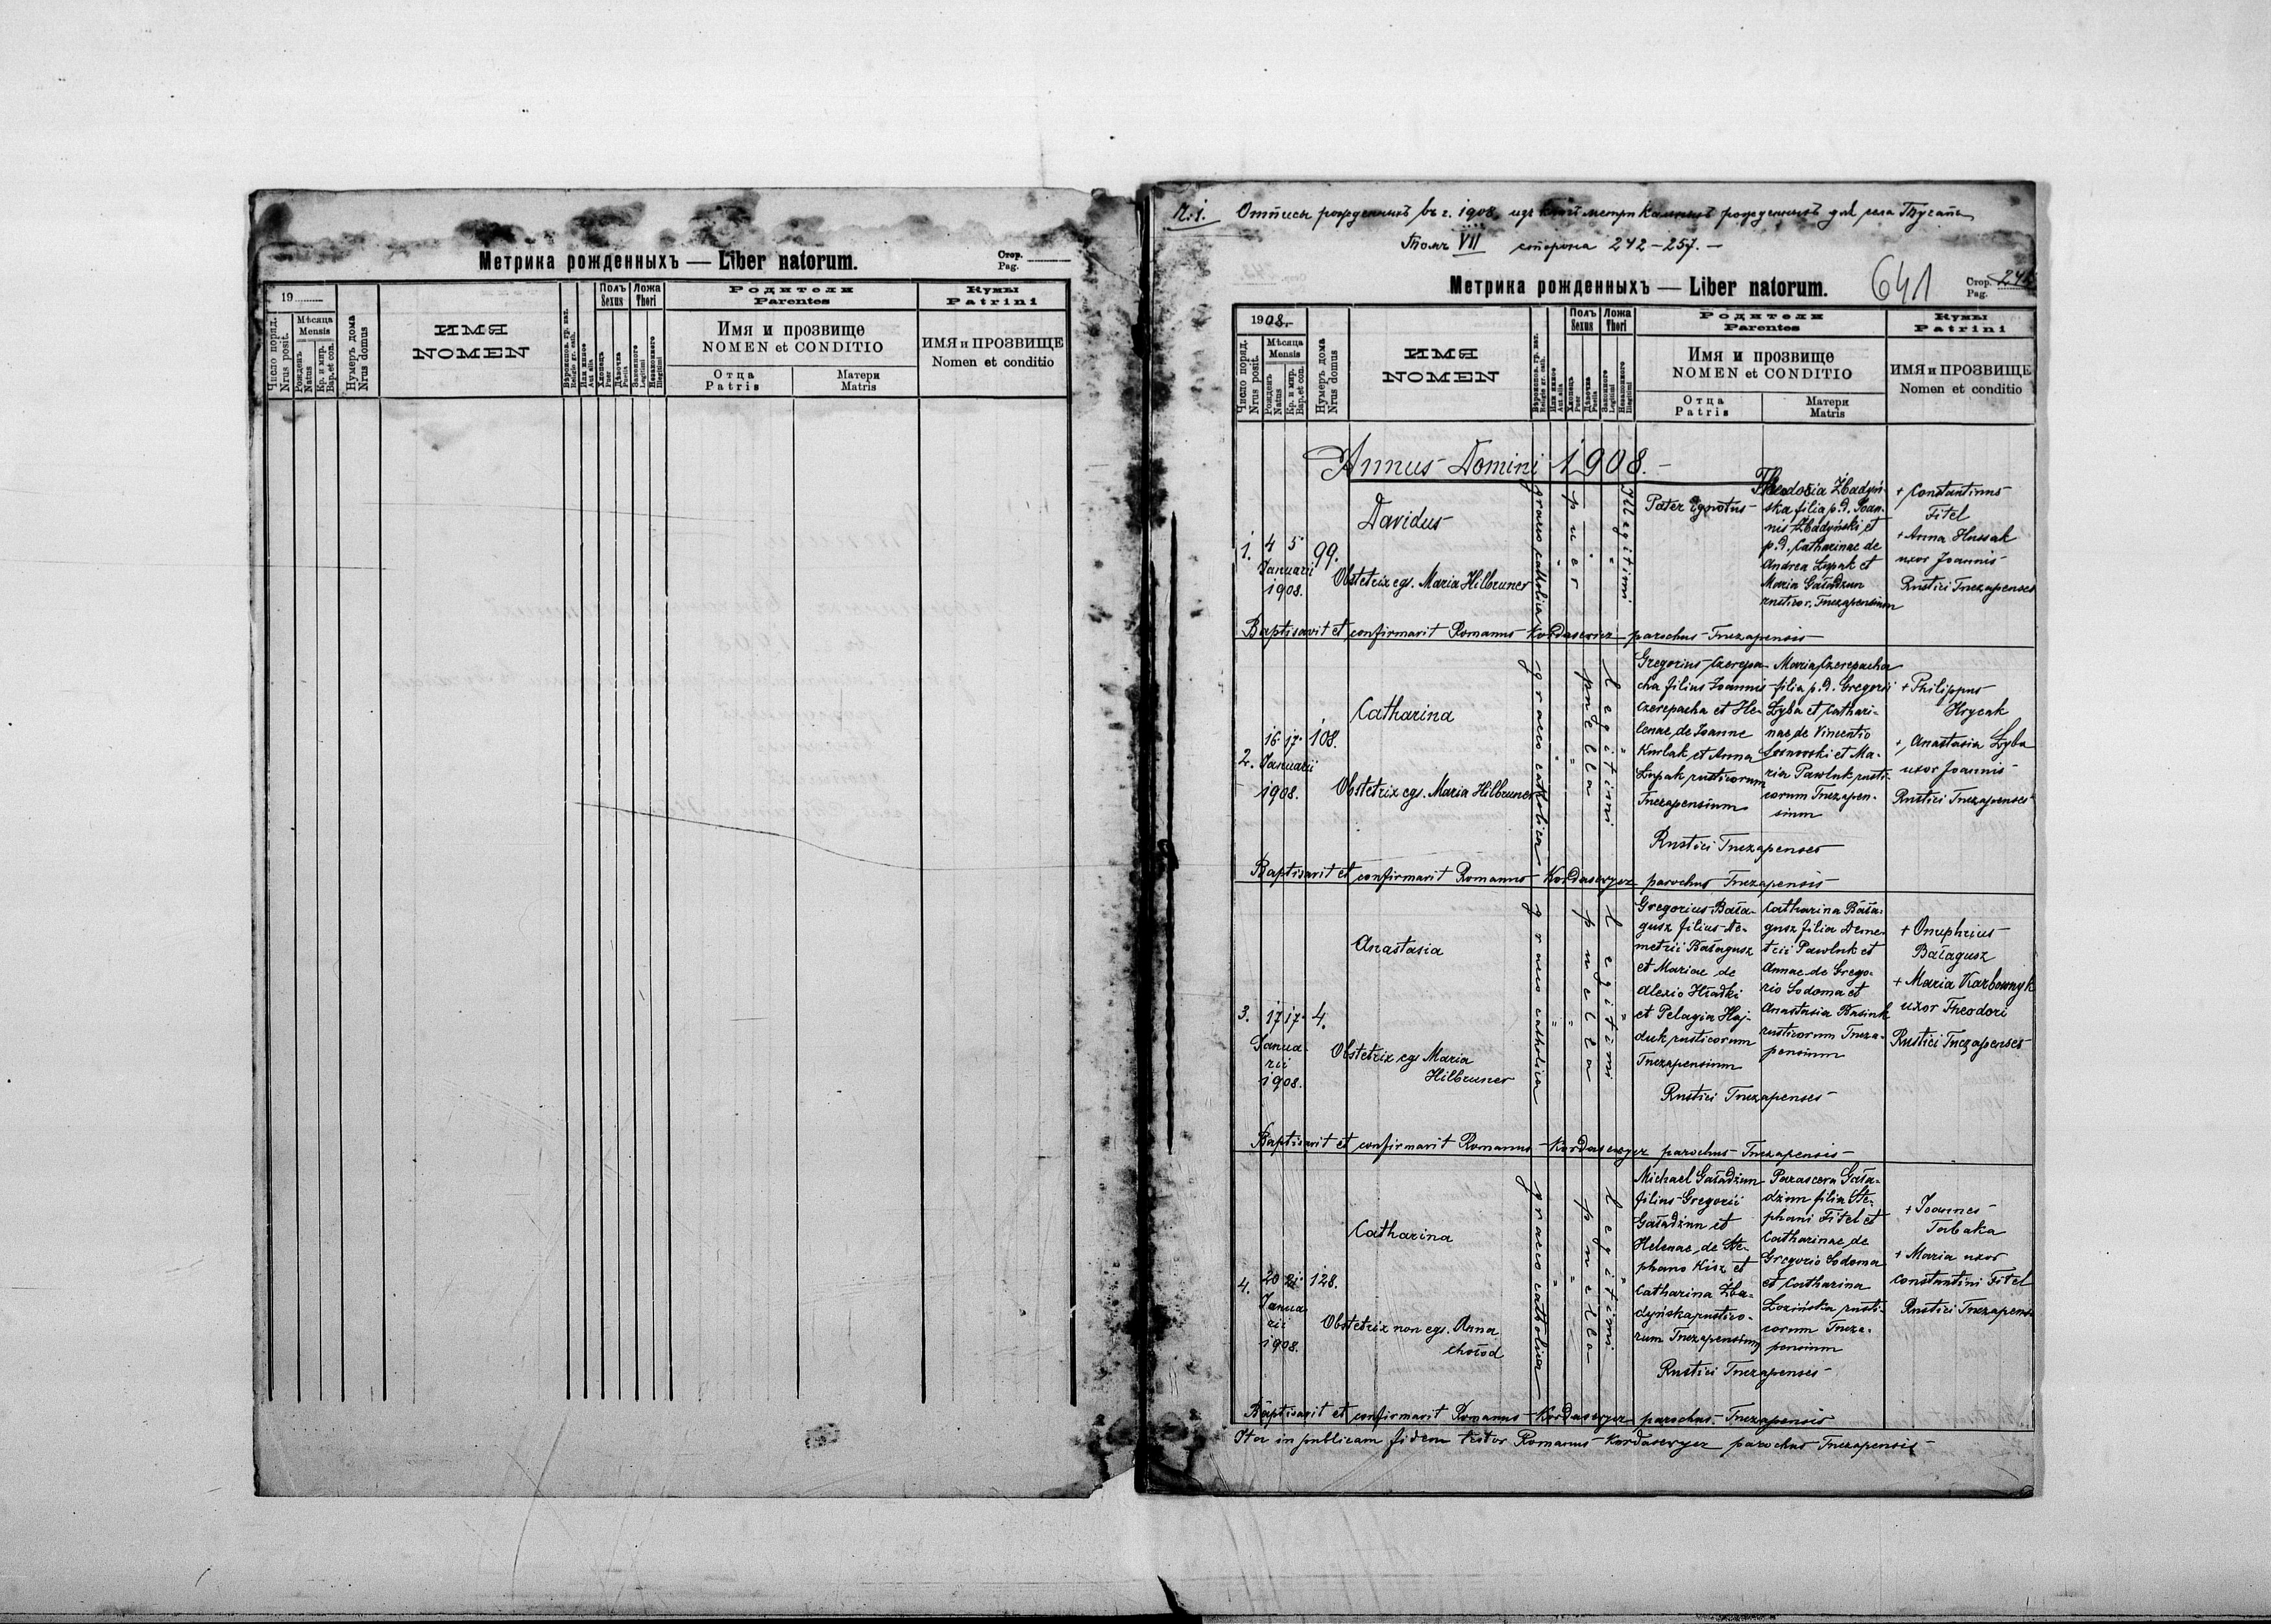 Метрика рожденныхъ — Liber natorum.
Стор.
Pag.
19
Число поряд.
Nrus posit.
Мѣсяца
Mensis
Рожденъ
Natus
Кр. и мир.
Bap. et con.
Нумеръ дома
Nrus domus
ИМЯ
NOMEN
Вѣроиспов. гр. кат.
Religio gr. cath.
Или иное
Aut alia
Полъ
Sexus
Хлопецъ
Puer
Дѣвочка
Puella
Ложа
Thori
Законного
Legitimi
Незаконного
Illegitimi
Родители
Parentes
Имя и прозвище
NOMEN et CONDITIO
Отца
Patris
Матери
Matris
Кумы
Patrini
ИМЯ и ПРОЗВИЩЕ
Nomen et conditio
Ч.1. Отписи рожденныхъ въ г. 1908 изъ книгъ метрикальныхъ рожденныхъ для села
Томъ VII сторона 242-257.-
Метрика рожденныхъ — Liber natorum.
641
Стор.
Pag.
242
1908.
Число поряд.
Nrus posit.
Мѣсяца
Mensis
Рожденъ
Natus
Кр. и мир.
Bap. et con.
Нумеръ дома
Nrus domus
ИМЯ
NOMEN
Вѣроиспов. гр. кат.
Religio gr. cath.
Или иное
Aut alia
Полъ
Sexus
Хлопецъ
Puer
Дѣвочка
Puella
Ложа
Thori
Законного
Legitimi
Незаконного
Illegitimi
Родители
Parentes
Имя и прозвище
NOMEN et CONDITIO
Отца
Patris
Матери
Matris
Кумы
Patrini
ИМЯ и ПРОЗВИЩЕ
Nomen et conditio
Annus Domini 1908.-
1.
4 5
Januarii
1908.
99.
Davidus
Obstetrix egs. Maria Hilbruner
graeco catholica
puer
Illegitimi
Pater Ignotus
Theodosia Zbadyń-
ska filia p.d. Joan-
nis Zbadyński et
p.d. Catharinae de
Andrea Łypak et
Maria Gaładżun
rusticor. Tnezapensium
+ Constantinus
Fitel
+ Anna Hussak
uxor Joannis
Rustici Tnezapenses
Baptisavit et confirmavit Romanus Kordasewicz parochus Tnezapensis
2.
16 17
Januarii
1908.
108.
Catharina
Obstetrix egs. Maria Hilbruner
graeco catholica
puella
Legitimi
Gregorius Czerepa-
cha filius Joannis
Czerepacha et He-
lenae de Joanne
Kurlak et Anna
Łypak rusticorum
Tnezapensium
Maria Czerepacha
filia p.d. Gregorii
Zyba et Cathari-
nae de Vincentio
Sosnowski et Ma-
ria Pawluk rusti-
corum Tnezapen-
sium
Rustici Tnezapenses
+ Philippus
Hrycak
+ Anastasia Zyba
uxor Joannis
Rustici Tnezapenses
Baptisavit et confirmavit Romanus Kordasewycz parochus Tnezapensis
3.
17 17
Janua-
rii
1908.
4.
Anastasia
Obstetrix egs Maria
Hilbruner
graeco catholica
puella
Legitimi
Gregorius Bała-
gusz filius De-
metrii Bałagusz
et Mariae de
Alexio Hładki
et Pelagia Haj-
duk rusticorum
Tnezapensium
Catharina Bała-
gusz filia Deme-
trii Pawluk et
Annae de Grego-
rio Sodoma et
Anastasia Basiuk
rusticorum Tneza-
pensium
Rustici Tnezapenses
+ Onuphrius
Bałagusz
+ Maria Karbownyk
uxor Theodori
Rustici Tnezapenses
Baptisavit et confirmavit Romanus Kordasewycz parochus Tnezapensis
4.
20 21
Janua
rii
1908.
128.
Catharina
Obstetrix non egs. Anna
Chołod
graeco catholica
puella
Legitimi
Michael Gaładżun
filius Gregorii
Gaładżun et
Helenae de Ste-
phano Kisz et
Catharina Zba-
dyńska rustico-
rum Tnezapensium
Parasceva Gała-
dżun filia Ste-
phani Fitel et
Catharinae de
Gregorio Sodoma
et Catharina
Łozińska rusti-
corum Tneza-
pensium
Rustici Tnezapenses
+ Joannes
Tabaka
+ Maria uxor
Constantini Fitel
Rustici Tnezapenses
Baptisavit et confirmavit Romanus Kordasewycz parochus Tnezapensis
Ita in publicam fidem testor Romanus Kordasewycz parochus Tnezapensis